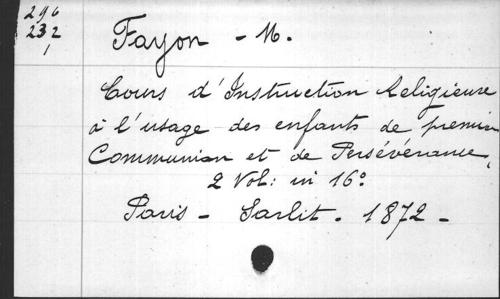 296
232
1
Fayon - M.
Cours d'Instruction Religieuse
à l'usage des enfants de premièr
Communion et de Persévérance,
2 Vol: in 16°
Paris - Sarlit. 1872 -